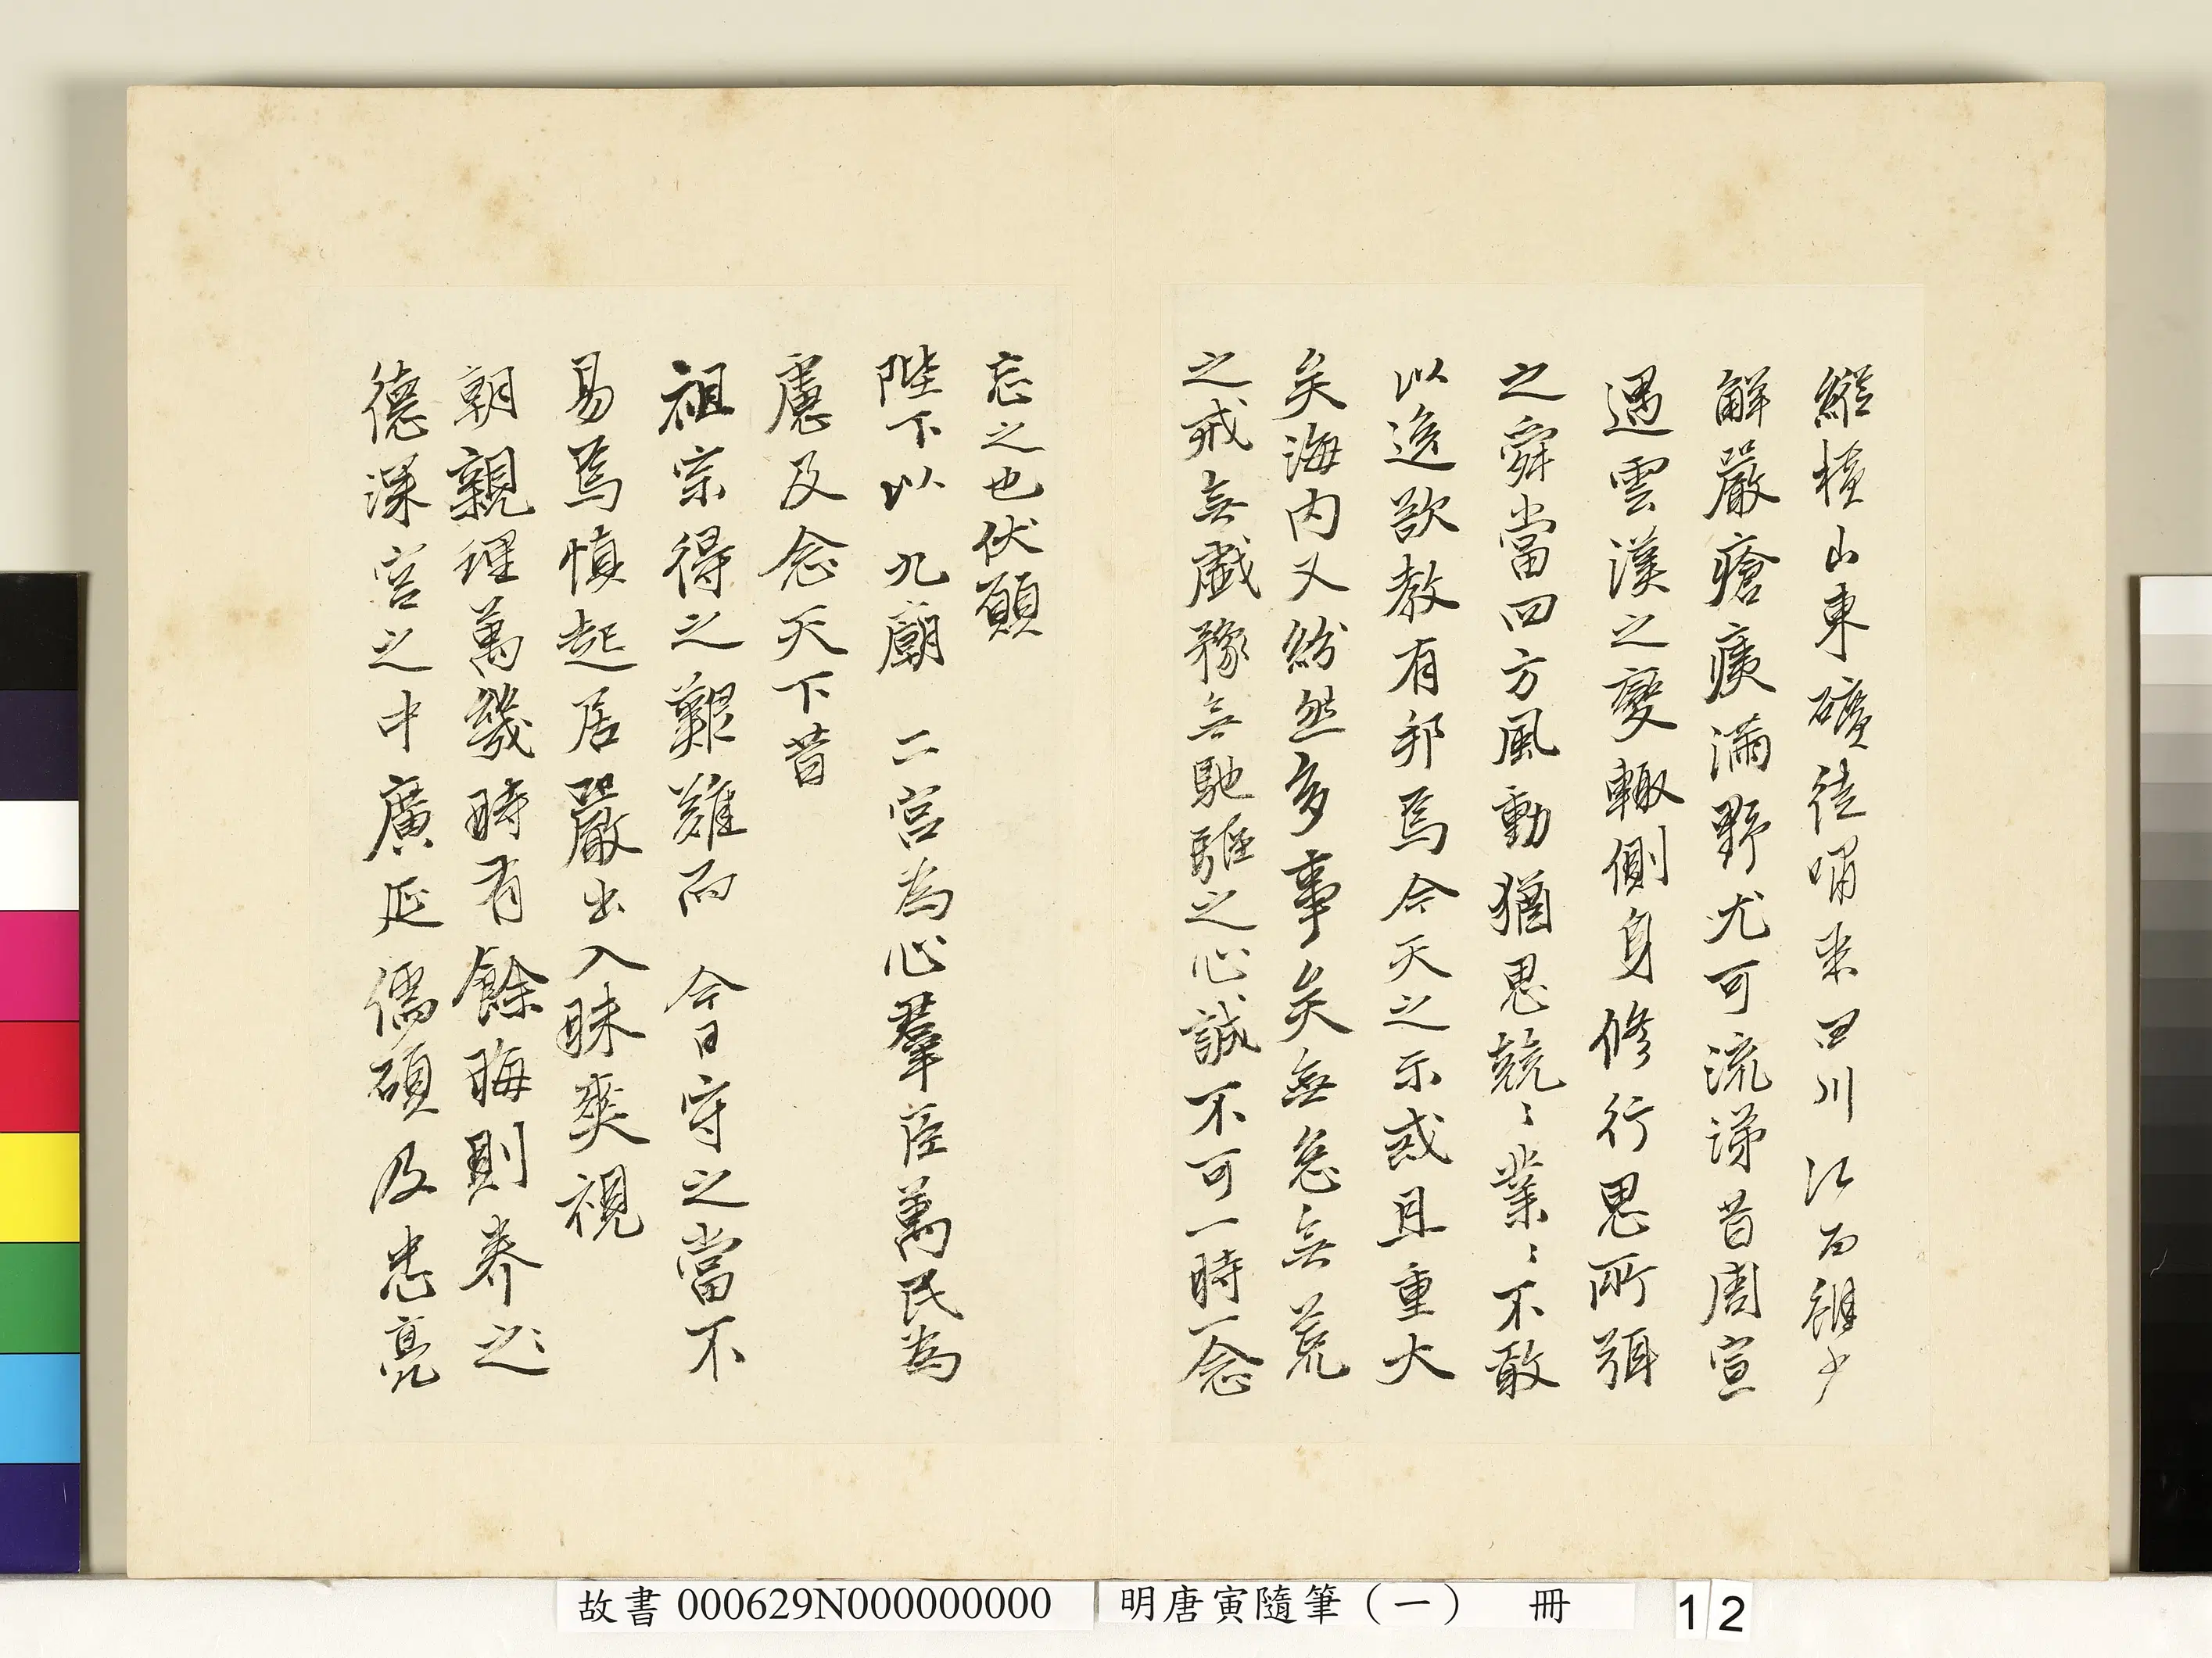 縱橫山東礦徒嘯聚四川江西雖少
解嚴瘡痍滿野尤可流涕昔周宣
遇雲漢之變輒側身修行思所弭
之舜當四方風動猶思兢〻業〻不敢
以逸欲教有邦焉今天之示戒且重大
矣海内又紛然多事矣無怠無荒
之戒無戲豫無馳驅之心誠不可一時一念
忘之也伏願
陛下以九廟 二宮為心羣臣萬民為
慮及念天下昔
祖宗得之艱難而 今日守之當不
易焉慎起居嚴出入昧爽視
朝親理萬幾時有餘晦則養之〻
德深宮之中廣延儒碩及忠亮
故書 000629N000000000
明唐寅隨筆（一） 冊
12